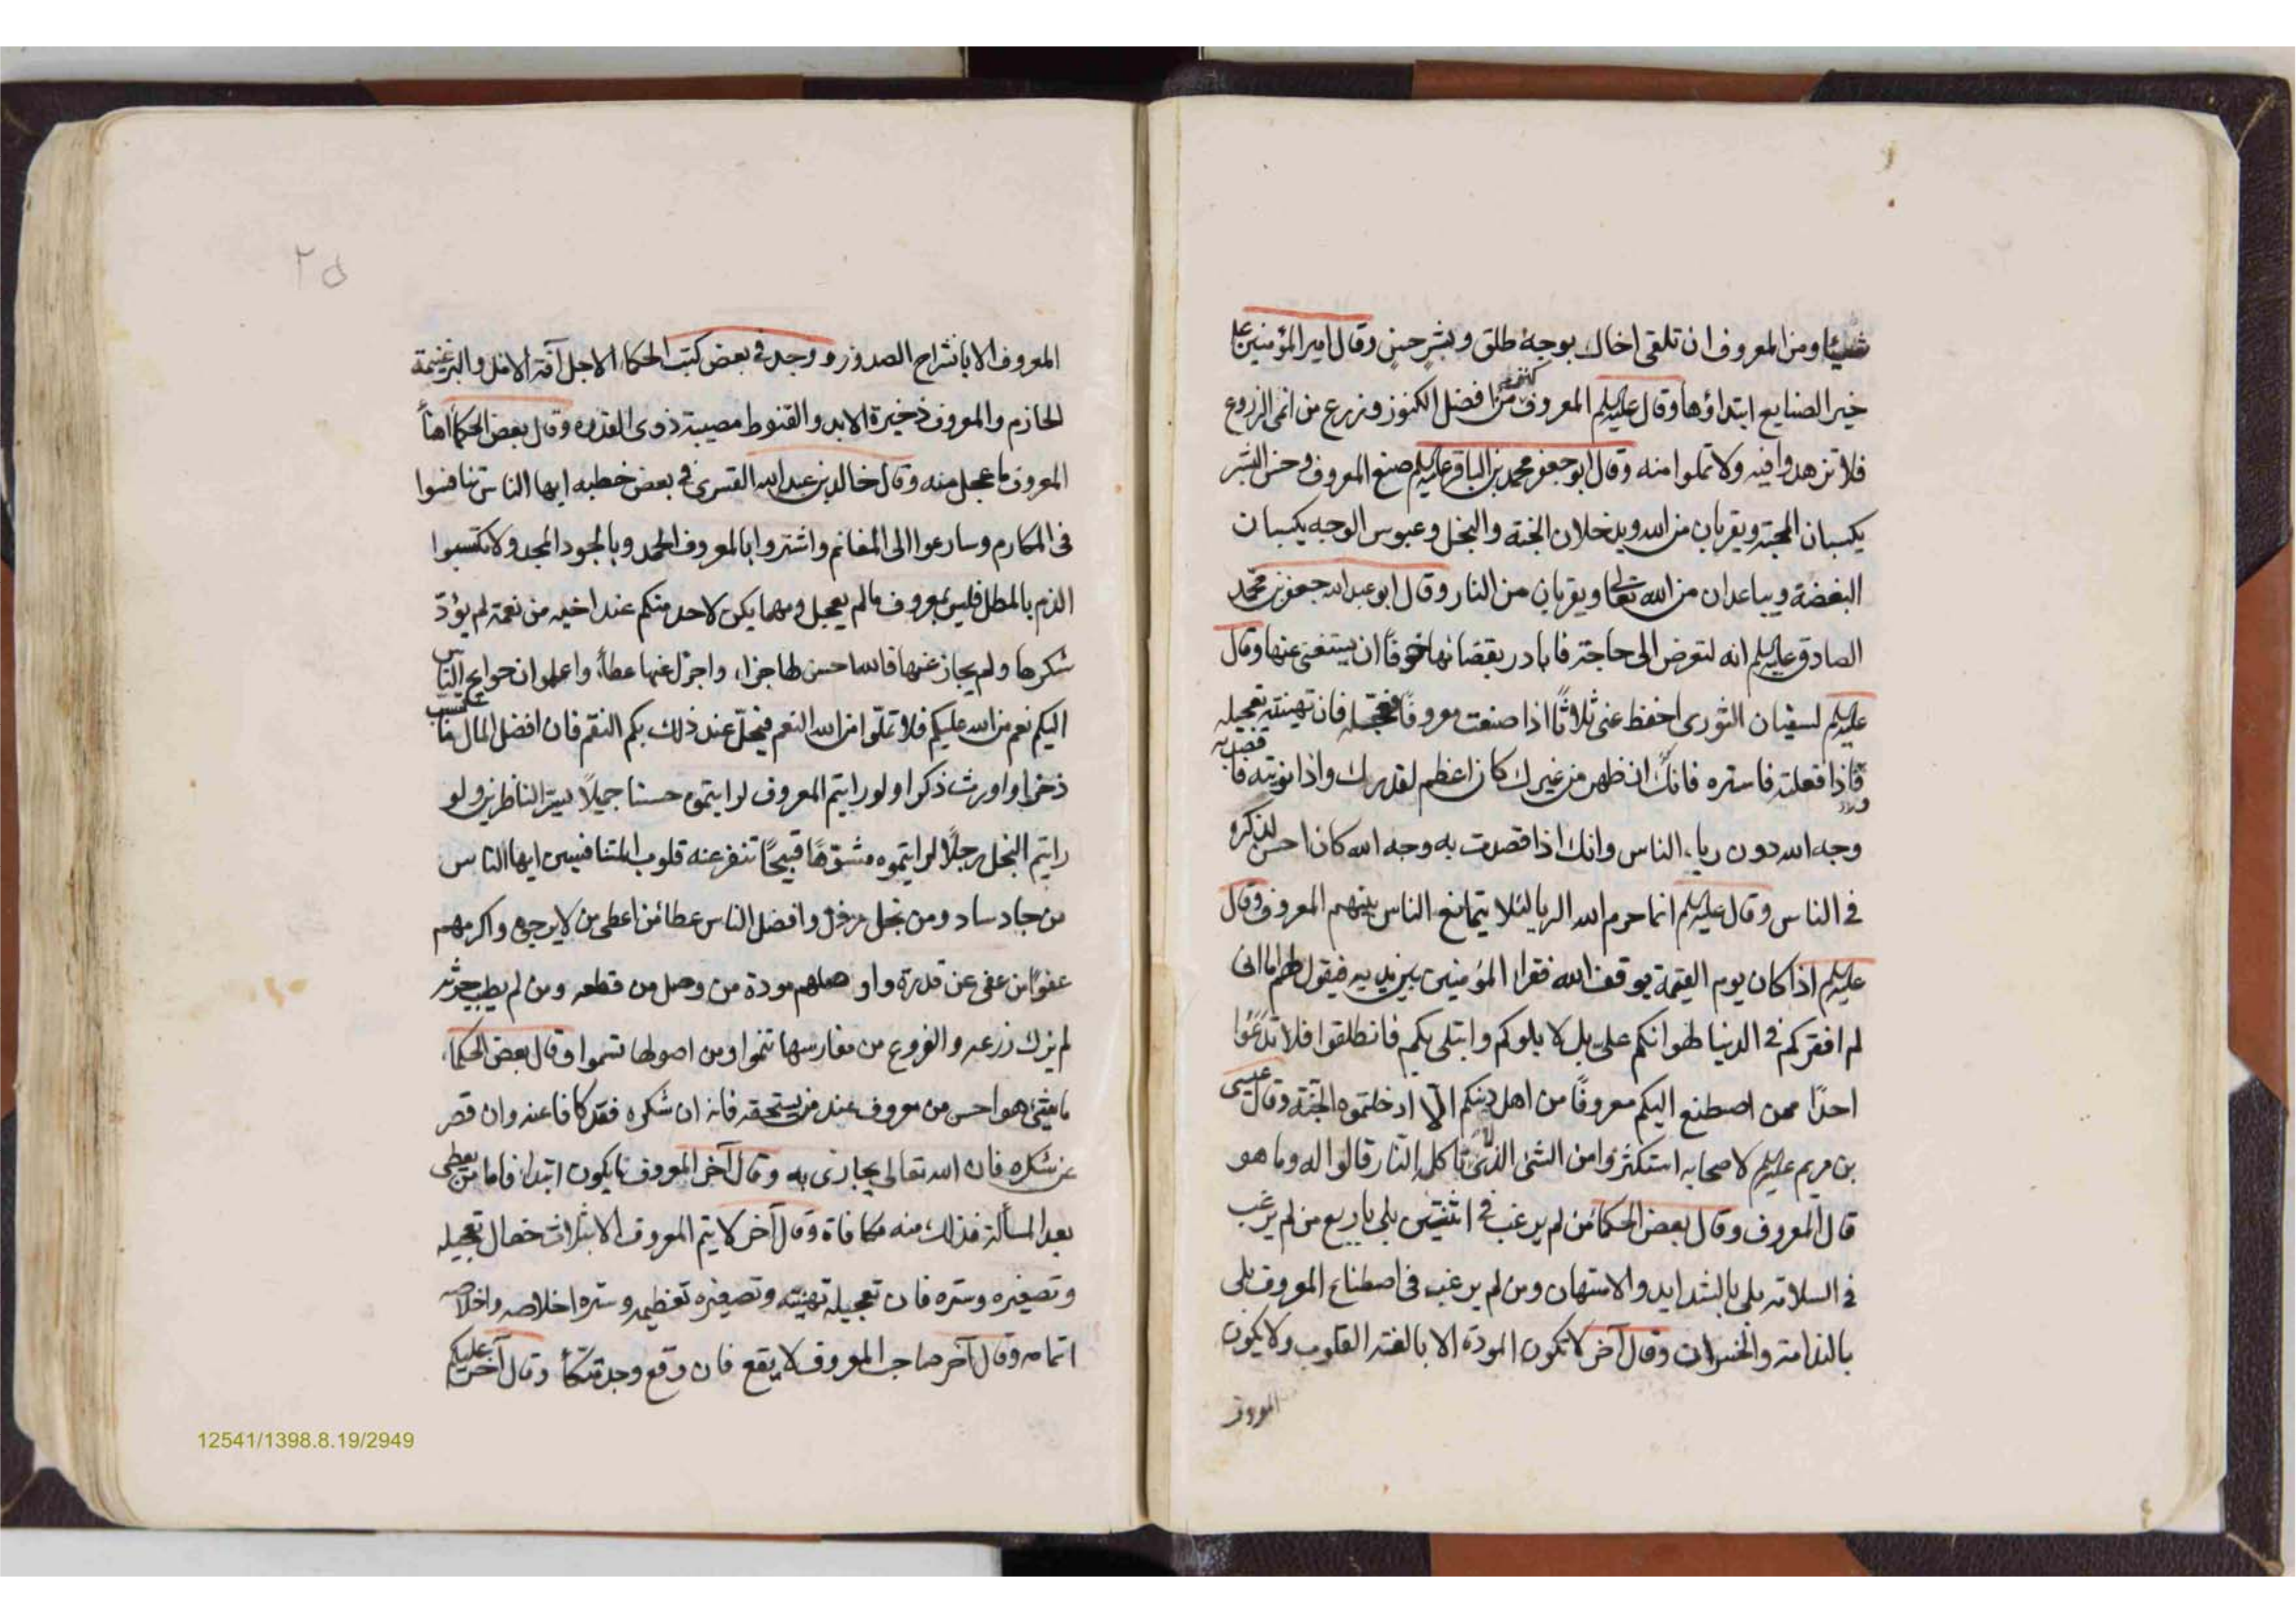 شيئا ومن المعروف ان تلقى اخاك بوجه طلق وبشر حسن وقال امير المؤمنين علي
خير الصنايع ابتداؤها وقال عليه السلم المعروف كنز من افضل الكنوز وزرع من انمى الزروع
فلا تزهدوا فيه ولا تملوا منه وقال ابو جعفر محمد بن الباقر عليه السلم صنع المعروف وحسن البشر
يكسبان المحبة ويقربان من الله ويدخلان الجنة والبخل وعبوس الوجه يكسبان
البغضة ويباعدان من الله تعالى ويقربان من النار وقال ابو عبد الله جعفر بن محمد
الصادق عليه السلم انه لتعرض الى حاجة فابادر بقضائها خوفًا ان يستغنى عنها وقال
عليه السلم لسفيان الثورى احفظ عنى ثلاثًا اذا صنعت معروفًا فعجله فان تهنيته تعجيله
فاذا فعلته فاستره فانك ان ظهر من غيرك كان اعظم لقدرك واذا نويته فاقصد به
وجه الله دون رياء الناس وانك اذا قصدت به وجه الله كان احسن لذكره
فى الناس وقال عليه السلم انما حرم الله الربا لئلا يتمانع الناس بينهم المعروف وقال
عليه السلم اذا كان يوم القيمة يوقف الله فقراء المؤمنين بين يديه فيقول لهم اما انى
لم افقركم فى الدنيا لهوانكم على بل لابلوكم وابتلى بكم فانطلقوا فلا تدعوا
احدًا ممن اصطنع اليكم معروفًا من اهل دينكم الا ادخلتموه الجنة وقال عيسى
بن مريم عليه السلم لاصحابه استكثروا من الشئ الذى لا تاكله النار قالوا له وما هو
قال المعروف وقال بعض الحكماء من لم يرغب فى اثنتين بلى باربع من لم يرغب
فى السلامة بلى بالشدايد والامتهان ومن لم يرغب فى اصطناع المعروف بلى
بالندامة والخسران وقال آخر لا تكون المودة الا بالفة القلوب ولا يكون
المعروف
٢٥
المعروف الا بانشراح الصدور ووجد فى بعض كتب الحكماء الاجل آفة الامل والبر غنيمة
الحازم والمعروف ذخيرة الابد والقنوط مصيبة ذوى القدرة وقال بعض الحكماء اهنأ
المعروف ما عجل منه وقال خالد بن عبد الله القسرى فى بعض خطبه ايها الناس تنافسوا
فى المكارم وسارعوا الى المغانم واشتروا بالمعروف الحمد وبالجود المجد ولا تكتسبوا
الذم بالمطل فليس بمعروف ما لم يعجل ومهما يكن لاحد منكم عند اخيه من نعمة لم يؤدّ
شكرها ولم يجاز عنها فالله احسن لها جزاء واجزل عنها عطاء واعلموا ان حوايج الناس
اليكم نعم من الله عليكم فلا تملّوا من الله النعم فيحلّ عند ذلك بكم النقم فان افضل المال ما كسب
ذخرا واورث ذكرا ولو رايتم المعروف لرايتموه حسنا جميلًا يسرّ الناظرين ولو
رايتم البخل رجلًا لرايتموه مشوّهًا قبيحًا تنفر عنه قلوب المتنافسين ايها الناس
من جاد ساد ومن بخل رذل وافضل الناس عطاء من اعطى من لا يرجوه واكرمهم
عفوًا من عفى عن قدرة واوصلهم مودة من وصل من قطعه ومن لم يطب حرثه
لم يزك زرعه والفروع من مغارسها تنموا ومن اصولها تسموا وقال بعض الحكماء
ما شئ هو احسن من معروف عند من يستحقه فانه ان شكره فقد كافا عنه وان قصر
عن شكره فان الله تعالى يجازى به وقال آخر المعروف ما يكون ابتداء فاما من يعطى
بعد المسألة فذلك منه مكافاة وقال آخر لا يتم المعروف الا بثلاث خصال تعجيله
وتصغيره وستره فان تعجيله تهنيته وتصغيره تعظيمه وستره اخلاصه واخلاصه
اتمامه وقال آخر صاحب المعروف لا يقع فان وقع وجد متكأ وقال آخر عليكم
12541/1398.8.19/2949